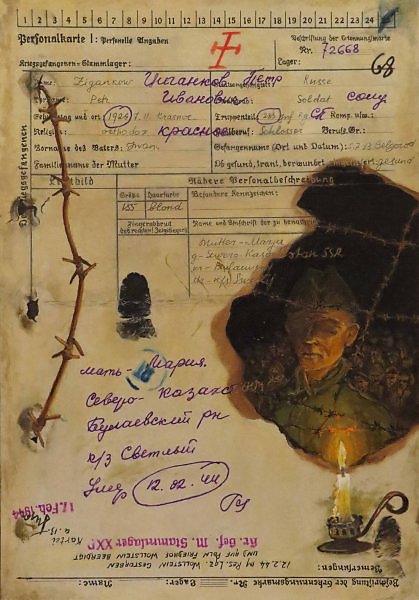 1 2 3 4 5 6 7 8 9 10 11 12 13 14 15 16 17 18 19 20 21 22 23 24 25
Personalkarte I: Personelle Angaben
Beschriftung der Erkennungsmarke
Nr. 72668
Kriegsgefangenen-Stammlager:
Lager:
68
Name: Zigankow Цыганков Петр
Staatsangehörigkeit: Russe
Vorname: Petr Иванович
Dienstgrad: Soldat солд
Geburtstag und -ort: 1924
Krasnoe
Truppenteil: 283
Komp. usw.:
Religion: orthodox красное
Zivilberuf: Schlosser Berufs-Gr.:
Vorname des Vaters: Iwan
Gefangennahme (Ort und Datum): 5.7.43 Belgorod
Familienname der Mutter
Ob gesund, krank, verwundet eingeliefert: gesund
Des Kriegsgefangenen
Lichtbild
Nähere Personalbeschreibung
Größe Haarfarbe Besondere Kennzeichen:
155 blond
Fingerabdruck
des rechten Zeigefingers
Name und Anschrift der zu benachrichtigenden
Mutter-Marja
SSR
мать Мария.
Северо-Казахст
Булаевский рн
к/з Светлый
Умер 12.02.44
17. Feb. 1944
Kr. Gef. M. Stammlager XXI
12.2.44 im Res. Laz. Wollstein gestorben
und auf dem Friedhof Wollstein beerdigt
Kartei
Bemerkungen:
Name:
Lager:
Nr.
Beschriftung der Erkennungsmarke